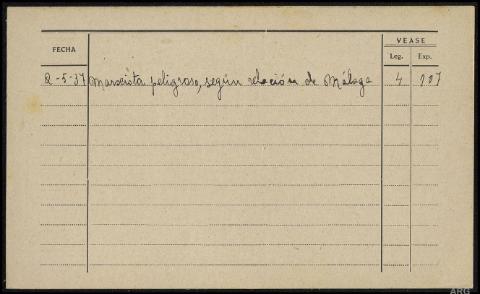 VEASE
FECHA
Leg. Exp.
2-5-37 Marxista peligroso, según relación de Málaga 4
ARG